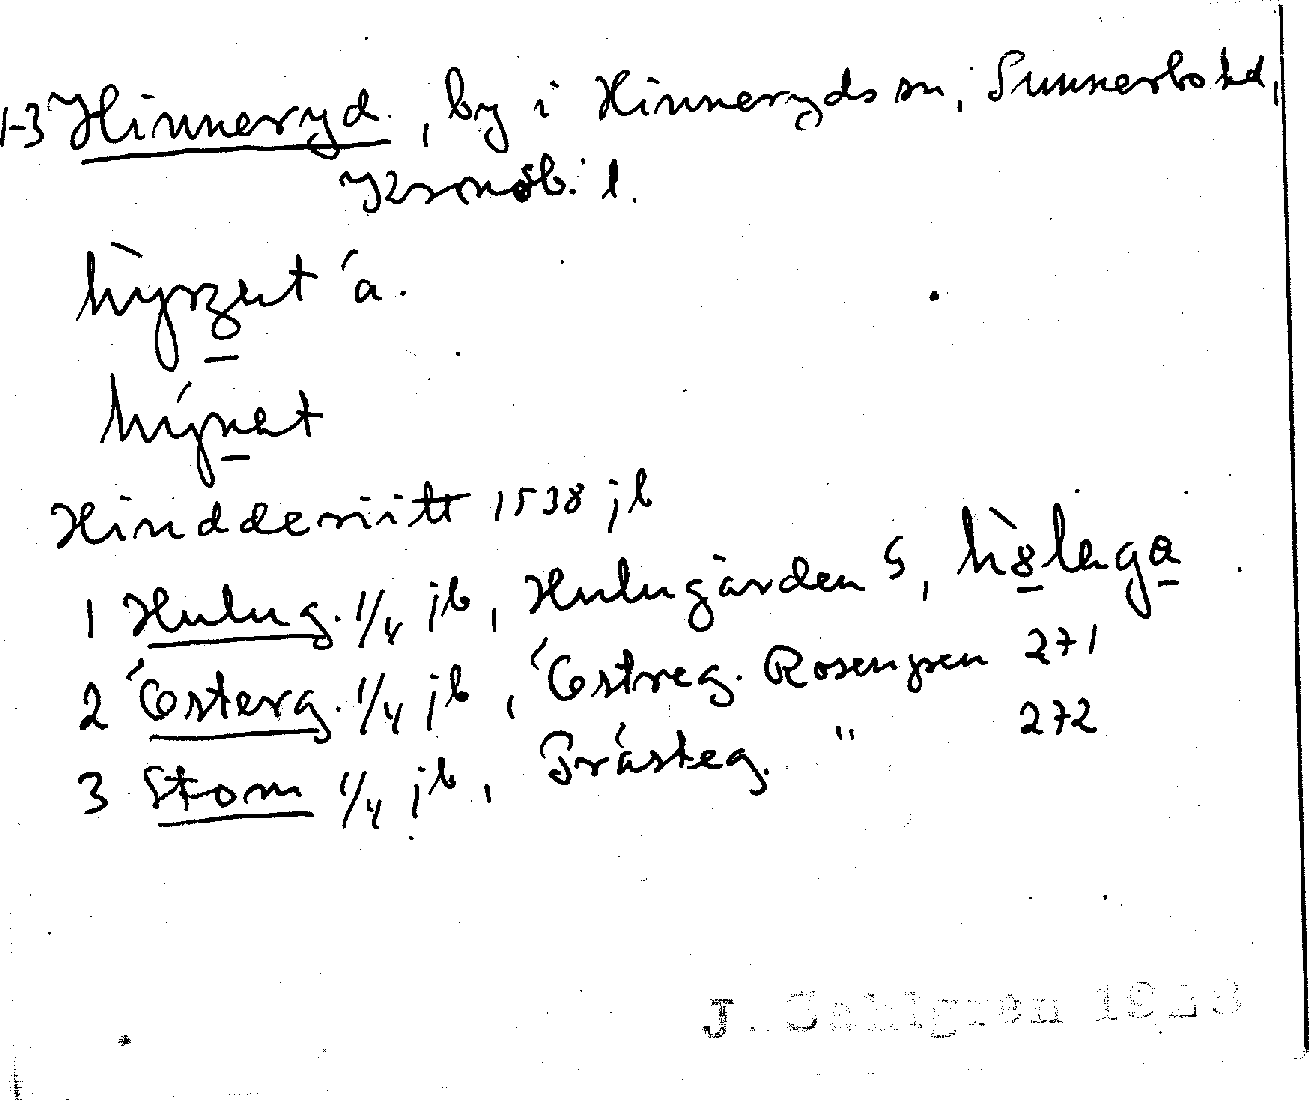 1-3 Hinneryd, by i Hinneryds sn, Sunnerbo hd,
Kronob. l.
Hindderiitt 1538 jb
1 Hulug. 1/4 jb, Hulugården S,
2 Österg. 1/4 jb, Östreg. Rosengren 271
3 Stom 1/4 jb, Prästeg. " 272
J. Sahlgren 1928